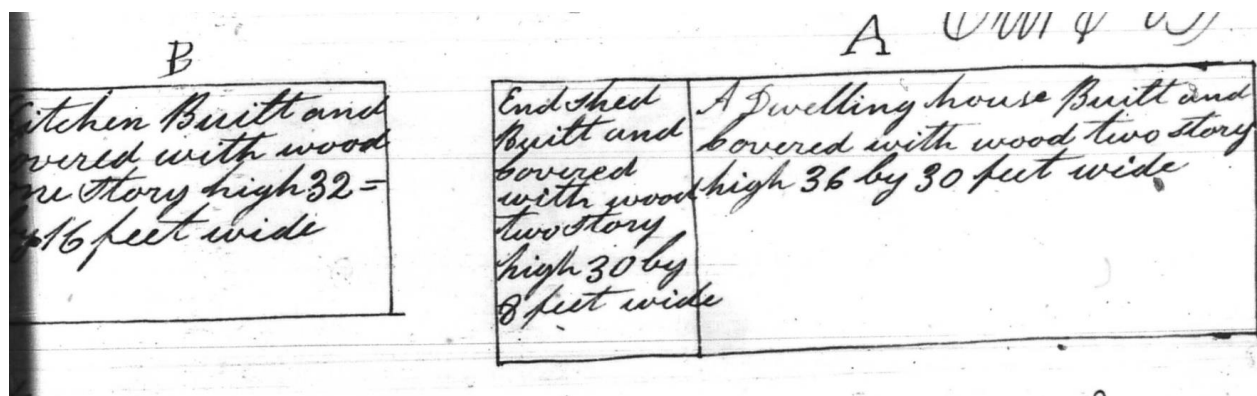 B
Kitchen Built and
covered with wood
one story high 32 =
by 16 feet wide
A
End Shed
Built and
Covered
with wood
two story
high 30 by
8 feet wide
A Dwelling house Built and
Covered with wood two story
high 36 by 30 feet wide